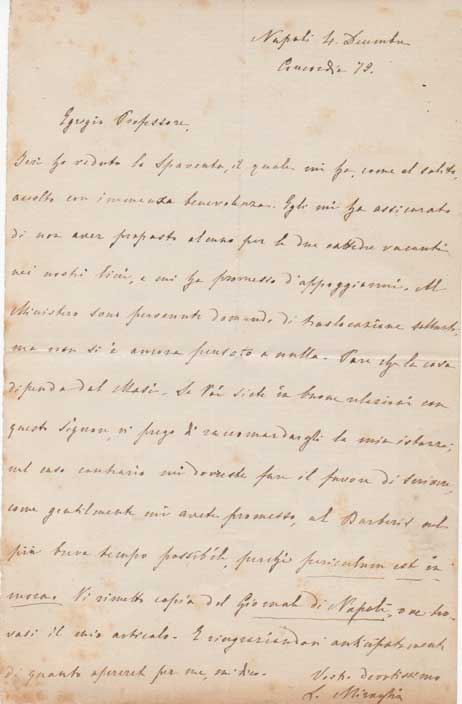 Napoli 4. Decembre
Concordia 73.
Egregio Professore,
Ieri ho veduto lo Spaventa, il quale mi ha, come al solito,
accolto con immensa benevolenza. Egli mi ha assicurato
di non aver proposto alcuno per le due cattedre vacanti
nei nostri licei, e mi ha promesso d'appoggiarmi. Al
Ministero sono pervenute domande di traslocazione
ma non si è ancora pensato a nulla. Pare che la cosa
dipenda dal Masi. Se Voi siete in buone relazioni con
questo signore, vi prego di raccomandargli la mia istanza;
nel caso contrario mi dovreste fare il favore di scrivere,
come gentilmente mi avete promesso, al Barberis nel
più breve tempo possibile, perchè periculum est in
mora. Vi rimetto copia del Giornale di Napoli, ove tro-
vasi il mio articolo. E ringraziandovi anticipatamente
di quanto opererete per me, mi dico.
Vostro devotissimo
L. Miraglia